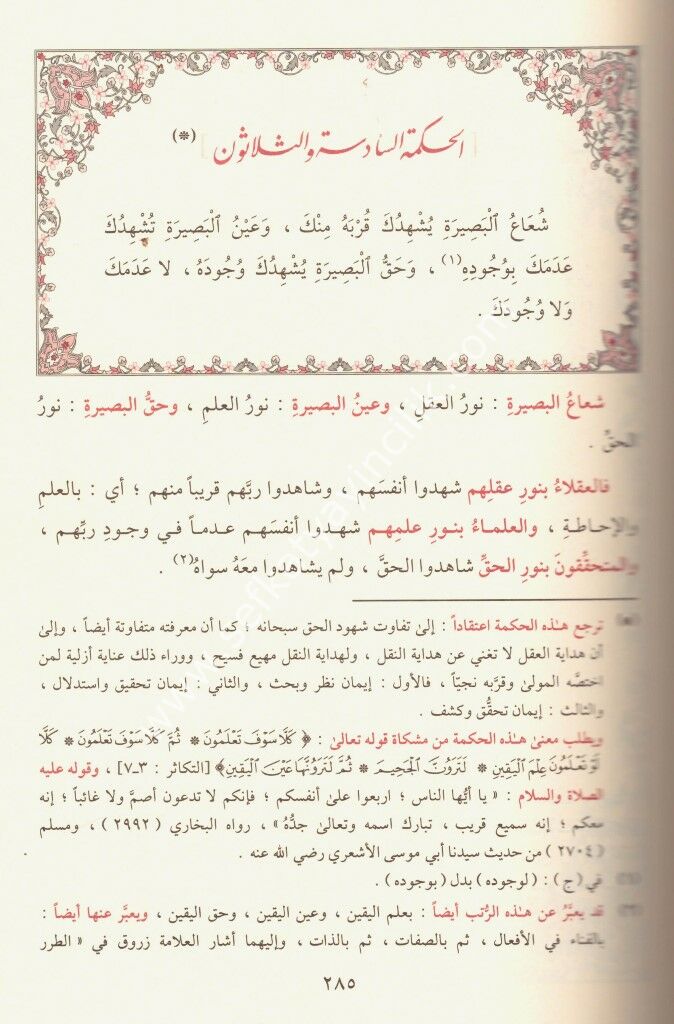 الحكمة السادسة والثلاثون (*)
شُعَاعُ ٱلْبَصِيرَةِ يُشْهِدُكَ قُرْبَهُ مِنْكَ ، وَعَيْنُ ٱلْبَصِيرَةِ تُشْهِدُكَ
عَدَمَكَ بِوُجُودِهِ(١) ، وَحَقُّ ٱلْبَصِيرَةِ يُشْهِدُكَ وُجُودَهُ ، لا عَدَمَكَ
وَلا وُجُودَكَ .
شعاعُ البصيرةِ : نورُ العقلِ ، وعينُ البصيرةِ : نورُ العلمِ ، وحقُّ البصيرةِ : نورُ
الحقِّ .
فالعقلاءُ بنورِ عقلِهم شهدوا أنفسَهم ، وشاهدوا ربَّهم قريباً منهم ؛ أي : بالعلمِ
والإحاطةِ ، والعلماءُ بنورِ علمِهم شهدوا أنفسَهم عدماً في وجودِ ربِّهم ،
والمتحقِّقونَ بنورِ الحقِّ شاهدوا الحقَّ ، ولم يشاهدوا معَهُ سواهُ(٢) .
(*) ترجع هـٰذه الحكمة اعتقاداً : إلىٰ تفاوت شهود الحق سبحانه ؛ كما أن معرفته متفاوتة أيضاً ، وإلىٰ
أن هداية العقل لا تغني عن هداية النقل ، ولهداية النقل مهيع فسيح ، ووراء ذلك عناية أزلية لمن
اختصَّه المولىٰ وقرَّبه نجيّاً ، فالأول : إيمان نظر وبحث ، والثاني : إيمان تحقيق واستدلال ،
والثالث : إيمان تحقُّق وكشف .
ويطلب معنىٰ هـٰذه الحكمة من مشكاة قوله تعالىٰ : ﴿ كَلَّا سَوْفَ تَعْلَمُونَ * ثُمَّ كَلَّا سَوْفَ تَعْلَمُونَ * كَلَّا
لَوْ تَعْلَمُونَ عِلْمَ ٱلْيَقِينِ * لَتَرَوُنَّ ٱلْجَحِيمَ * ثُمَّ لَتَرَوُنَّهَا عَيْنَ ٱلْيَقِينِ﴾ [التكاثر : ٣-٧] ، وقوله عليه
الصلاة والسلام : « يا أيُّها الناس ؛ اربعوا علىٰ أنفسكم ؛ فإنكم لا تدعون أصمَّ ولا غائباً ؛ إنه
معكم ؛ إنه سميع قريب ، تبارك اسمه وتعالىٰ جدُّه » ، رواه البخاري ( ٢٩٩٢ ) ، ومسلم
( ٢٧٠٤ ) من حديث سيدنا أبي موسى الأشعري رضي الله عنه .
(١) في ( ج ) : ( لوجوده ) بدل ( بوجوده ) .
(٢) قد يعبَّرُ عن هـٰذه الرُّتب أيضاً : بعلم اليقين ، وعين اليقين ، وحق اليقين ، ويعبَّر عنها أيضاً :
بالفناء في الأفعال ، ثم بالصفات ، ثم بالذات ، وإليهما أشار العلامة زروق في « الطرر
٢٨٥
www.sefkatyayincilik.com